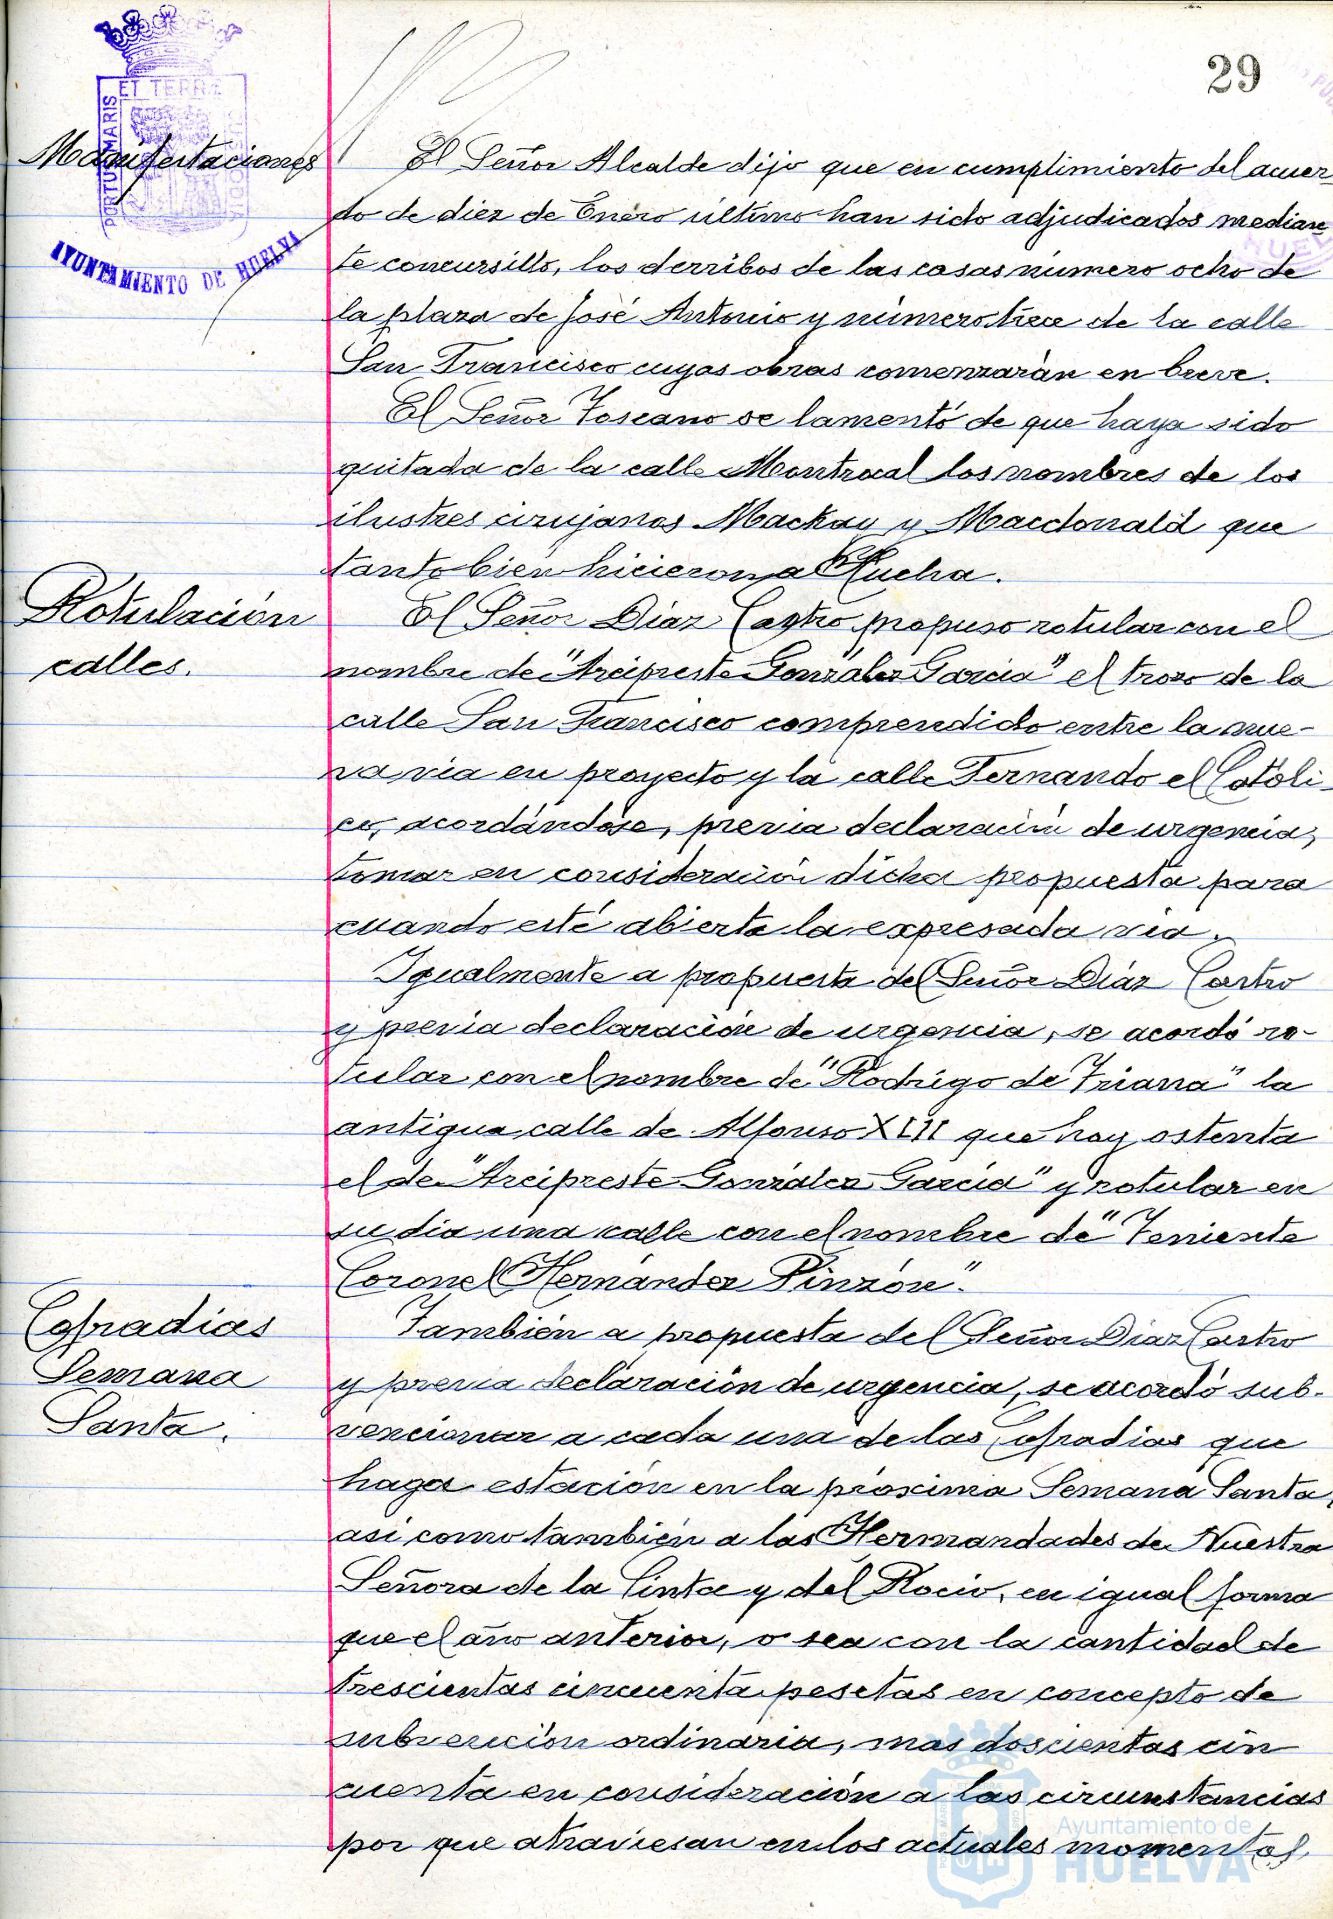 29
PORTUS MARIS
ET TERRÆ
CUSTODIA
AYUNTAMIENTO DE HUELVA
Manifestaciones
El Señor Alcalde dijo que en cumplimiento del acuer-
do de diez de Enero último han sido adjudicados median-
te concursillo, los derribos de las casas número ocho de
la plaza de José Antonio y número trece de la calle
San Francisco cuyas obras comenzarán en breve.
El Señor Toscano se lamentó de que haya sido
quitada de la calle Montrocal los nombres de los
ilustres cirujanos Mackay y Macdonald que
tanto bien hicieron a Huelva.
Rotulación
calles.
El Señor Díaz Castro propuso rotular con el
nombre de "Arcipreste González García" el trozo de la
calle San Francisco comprendido entre la nue-
va via en proyecto y la calle Fernando el Católi-
co, acordándose, previa declaración de urgencia,
tomar en consideración dicha propuesta para
cuando esté abierta la expresada via.
Igualmente a propuesta del Señor Díaz Castro
y previa declaración de urgencia, se acordó ro-
tular con el nombre de "Rodrigo de Triana" la
antigua calle de Alfonso XIII que hoy ostenta
el de "Arcipreste González García" y rotular en
su dia una calle con el nombre de "Teniente
Coronel Hernández Pinzón".
Cofradías
Semana
Santa.
También a propuesta del Señor Díaz Castro
y previa declaración de urgencia, se acordó sub-
vencionar a cada una de las Cofradías que
haga estación en la próxima Semana Santa,
así como también a las Hermandades de Nuestra
Señora de la Cinta y del Rocío, en igual forma
que el año anterior, o sea con la cantidad de
trescientas cincuenta pesetas en concepto de
subvención ordinaria, mas doscientas cin
cuenta en consideración a las circunstancias
por que atraviesan en los actuales momentos
Ayuntamiento de
HUELVA